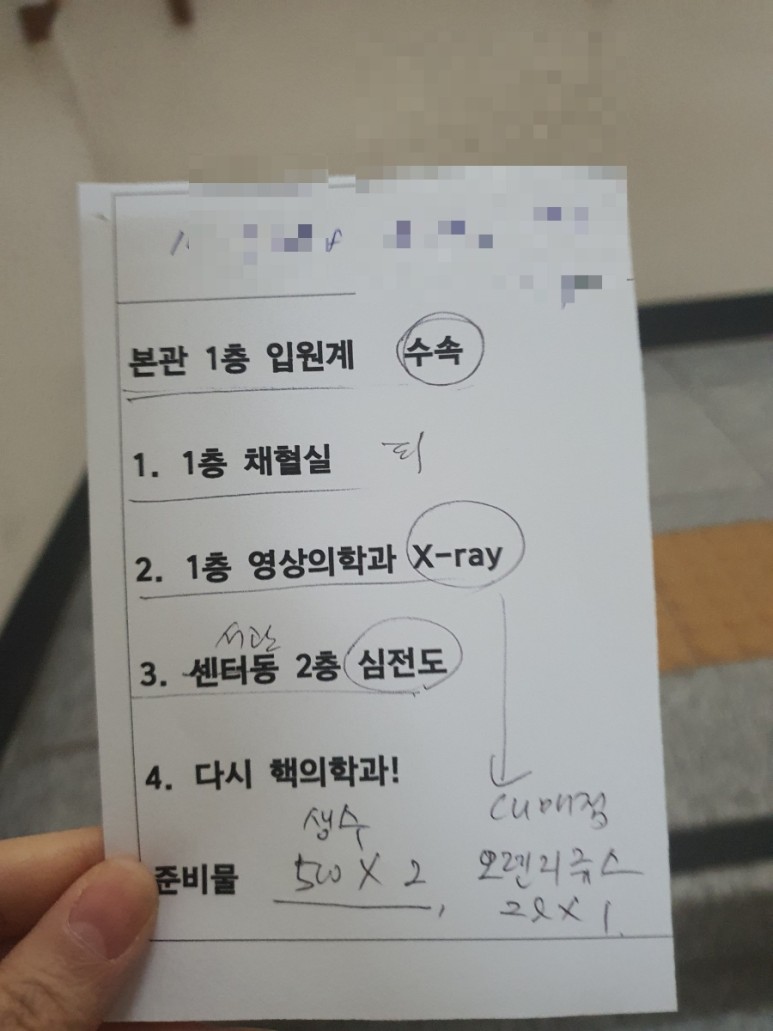 본관 1층 입원계 수속
1. 1층 채혈실 피
2. 1층 영상의학과 X-ray
서관
3. 센터동 2층 심전도
4. 다시 핵의학과!
생수
CU매점
준비물 500 X 2,
오렌지쥬스
2l X 1.